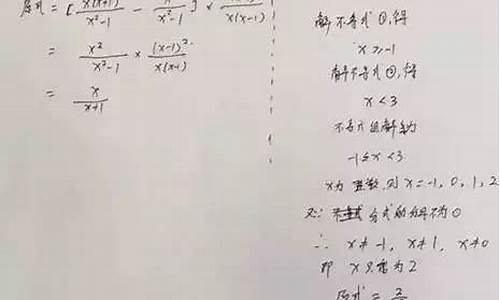 原式 = [ x(x+1) / x²-1 - x / x²-1 ] ×  / x(x-1)
= x² / x²-1 × (x-1)² / x(x-1)
= x / x+1
解不等式①,得
x ≥ -1
解不等式②,得
x < 3
不等式组解为
-1≤x<3
x为整数,则 x=-1,0,1,2
又∵ 分式的分母不为0
∴ x≠-1, x≠1, x≠0
即 x只能为2
原式 = 2